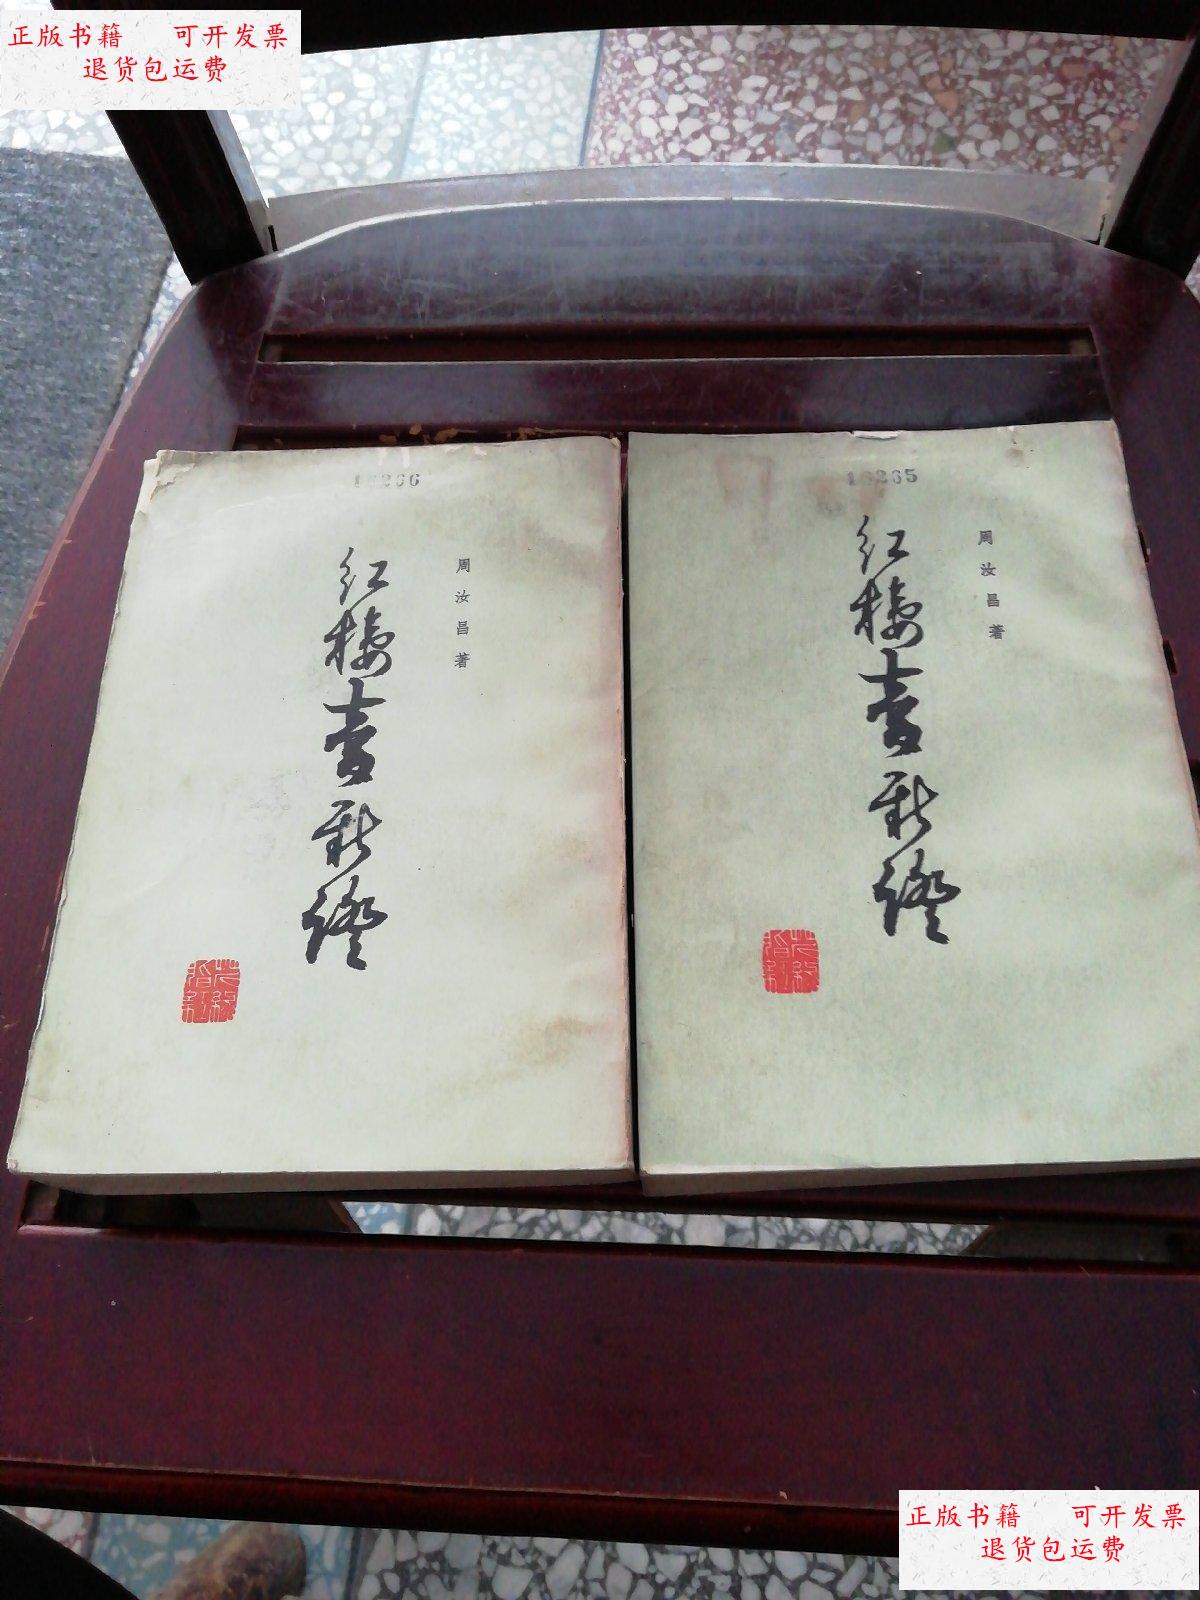 正版书籍 可开发票
退货包运费
周汝昌著
红楼梦新證
周汝昌著
红楼梦新證
正版书籍 可开发票
退货包运费